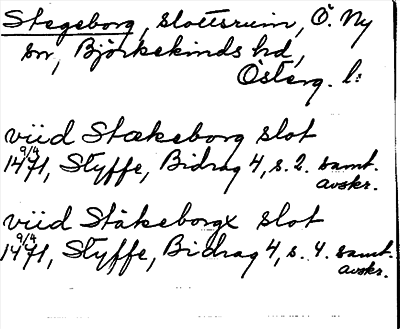 Stegeborg, slottsruin, Ö. Ny
sn, Björkekinds hd,
Österg. l:
viid Stækeborg slot
9/4 1471, Styffe, Bidrag 4, s. 2. samt.
avskr.
viid Stäkeborgx slot
9/4 1471, Styffe, Bidrag 4, s. 4. samt.
avskr.